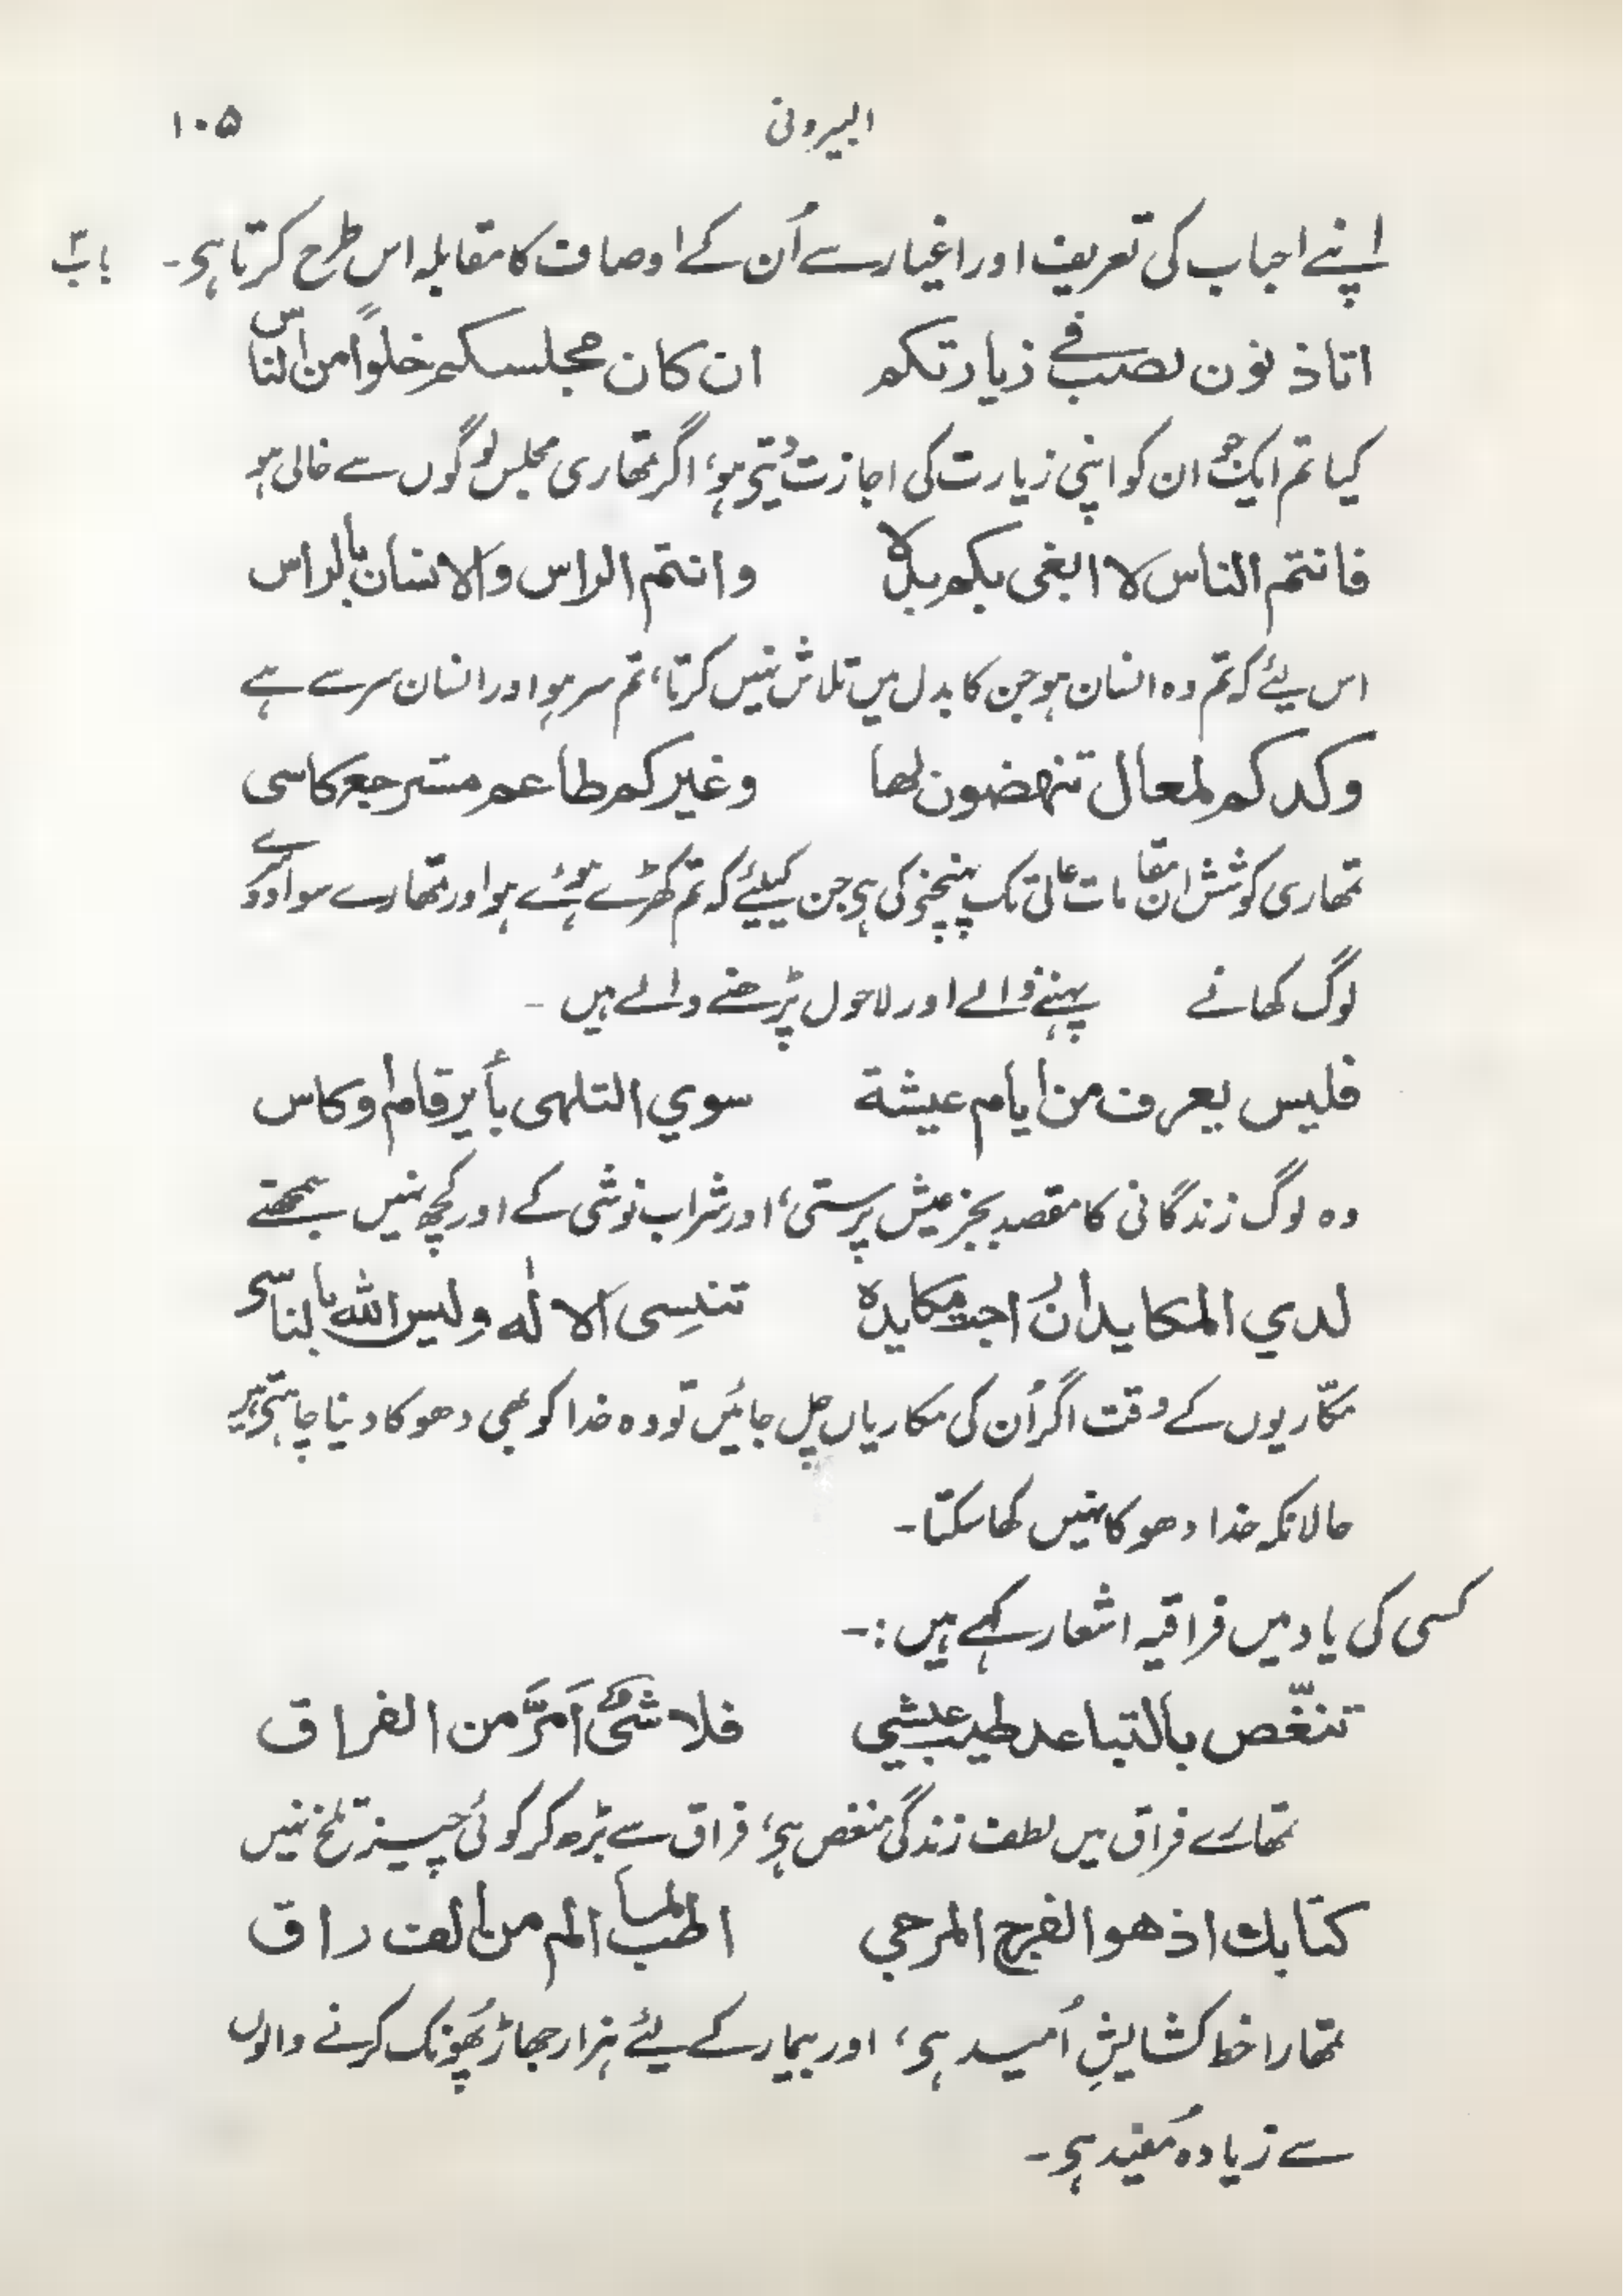 البیرونی ۱۰۵
اپنے احباب کی تعریف اور اغیار سے اُن کے اوصاف کا مقابلہ اس طرح کرتا ہی۔ باب۳
اتاذنون لصب فے زیارتکم ان کان مجلسکم خلوًا من الناس
کیا تم ایک جوان کو اپنی زیارت کی اجازت دیتے ہو، اگر تمھاری مجلس لوگوں سے خالی ہو
فانتم الناس لا ابغی بکم بدلا وانتم الراس والانسان بالراس
اس لیئے کہ تم وہ انسان ہو جن کا بدل میں تلاش نہیں کرتا، تم سر ہو اور انسان سر سے ہے
وکدکم لمعال تنھضون لھا وغیرکم طاعم مسترجع کاسی
تمھاری کوشش ان مقامات عالی تک پہنچنے کی ہی جن کیلیئے کہ تم کھڑے ہوئے ہو اور تمھارے سوا دوسرے
لوگ کھانے پہننے والے اور لاحول پڑھنے والے ہیں ۔
فلیس یعرف من ایام عیشة سوي التلھی بأیر قام او کاس
وہ لوگ زندگانی کا مقصد بجز عیش پرستی، اور شراب نوشی کے اور کچھ نہیں سمجھتے
لدي المکاید ان اجدت مکایده تنسِی الالٰه ولیس الله بالناسی
مکّاریوں کے وقت اگر اُن کی مکاریاں چل جائیں تو وہ خدا کو بھی دھوکا دینا چاہتے ہیں
حالانکہ خدا دھوکا نہیں کھا سکتا۔
کسی کی یاد میں فراقیہ اشعار کہے ہیں :۔
تنغّص بالتباعد طیب عیشي فلا شئ اَمَرَّ من الفراق
تمھارے فراق میں لطف زندگی منغص ہی، فراق سے بڑھ کر کوئی چیز تلخ نہیں
کتابك اذ هو الفرج المرجي اطب الم من الف راق
تمھارا خط کشایشِ اُمید ہی، اور بیمار کے لیئے ہزار جھاڑ پھُونک کرنے والوں
سے زیادہ مُفید ہی۔